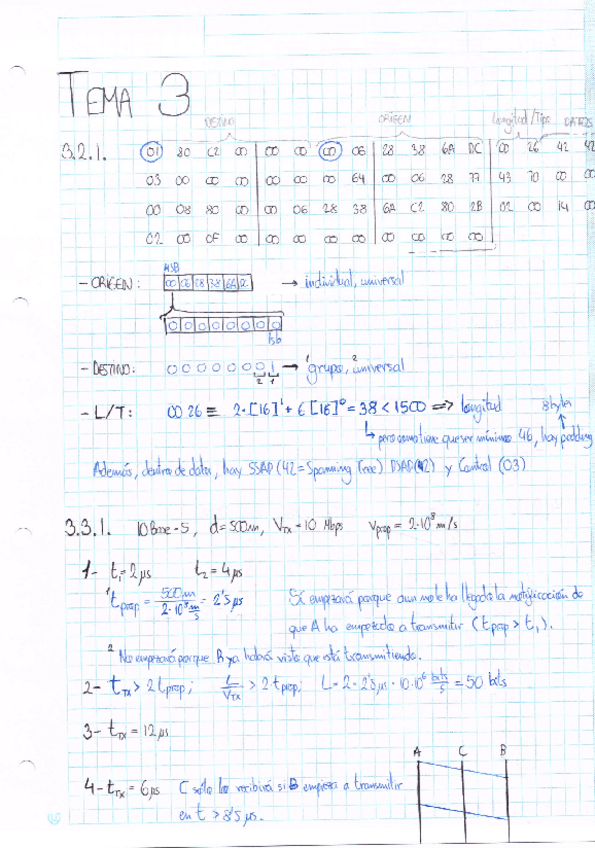 TEMA 3
DESTINO ORIGEN Longitud/Tipo DATOS
3.2.1. 01 80 C2 00 00 00 00 06 28 38 6A DC 00 26 42 42
03 00 00 00 00 00 00 64 00 06 28 77 43 70 00 00
00 08 80 00 00 06 28 38 6A C2 80 2B 02 00 14 00
02 00 0F 00 00 00 00 00 00 00 00 00
MSB
- ORIGEN: 00 06 28 38 6A DC → individual, universal
0 0 0 0 0 0 0 0
lsb
- DESTINO: 0 0 0 0 0 0 0 1 → ¹grupo, ²universal
2 1
- L/T: 00 26 ≡ 2·[16]¹ + 6[16]⁰ = 38 < 1500 => longitud 8 bytes
↳ pero como tiene que ser mínimo 46, hay padding
Además, dentro de datos, hay SSAP (42 = Spanning Tree) DSAP (42) y Control (03)
3.3.1. 10 Base-5, d = 500m, VTx = 10 Mbps Vprop = 2·10⁸ m/s
1- t₁ = 2 µs t₂ = 4 µs
¹ tprop = 500m / 2·10⁸ m/s = 2'5 µs Sí empezará porque aun no le ha llegado la notificación de
que A ha empezado a transmitir (tprop > t₁).
² No empezará porque B ya habrá visto que está transmitiendo.
2- tTx > 2tprop; L/VTx > 2·tprop; L = 2·2'5µs·10·10⁶ bits/s = 50 bits
3- tTx = 12 µs
A C B
4- tTx = 6µs C sólo lo recibirá si B empieza a transmitir
en t > 8'5 µs.